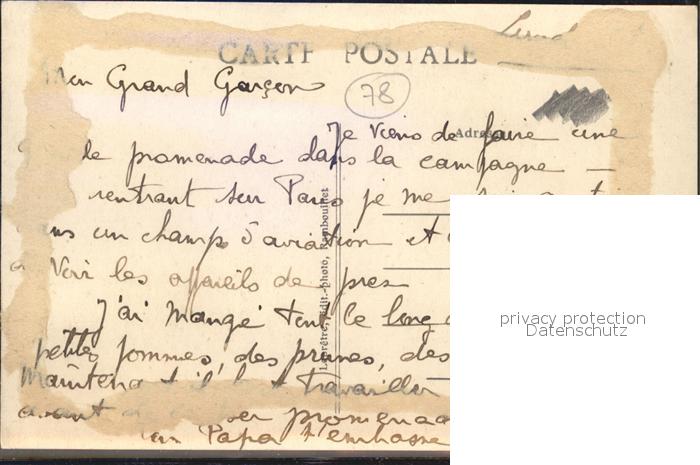 Lundi
CARTE POSTALE
Mon Grand Garçon
78
Je viens de faire une
Adres
le promenade dans la campagne —
rentrant sur Paris je me
un champ d'aviation et
voir les appareils de pres
J'ai mangé tout le long
petites pommes, des prunes, des
Maintenant il travailler
avant promenad
Papa t'embrasse
Édit.-photo, Rambouillet
privacy protection
Datenschutz